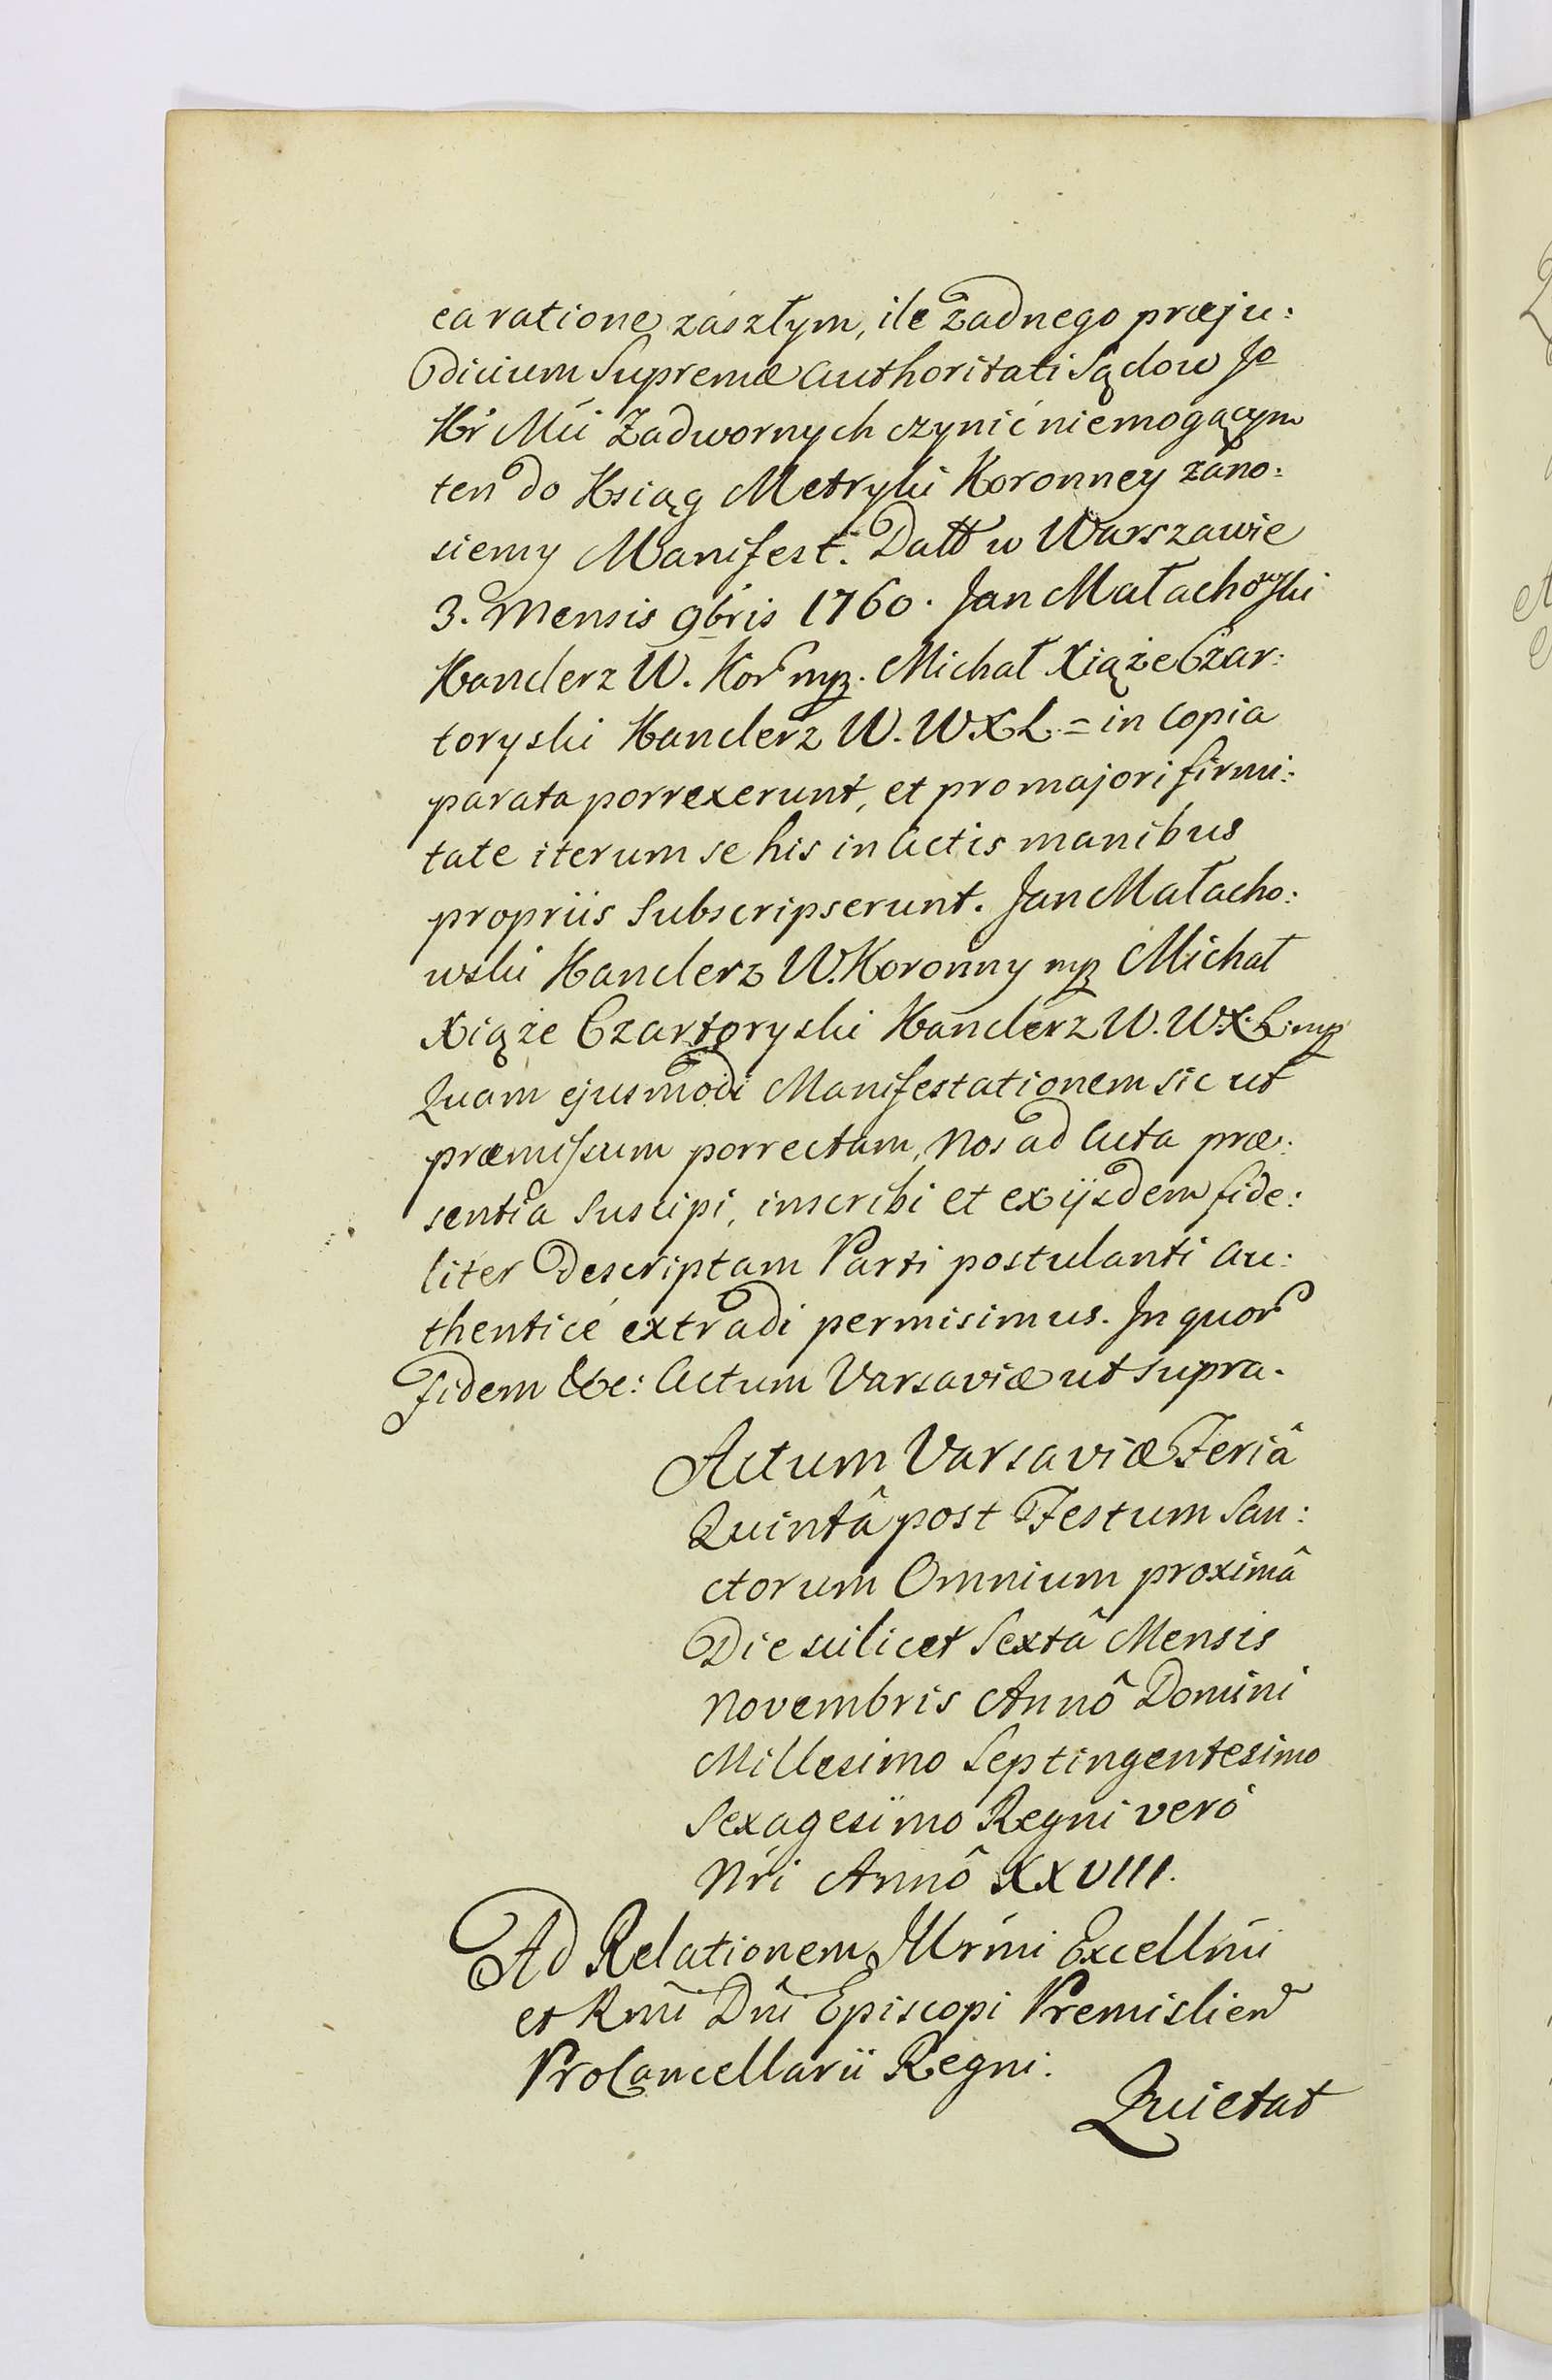 ea ratione zaszłym, ile żadnego præju:
dicium Supremæ Authoritati Sądow Jo
Kr Mći Zadwornych czynić niemogącym
ten do Ksiąg Metryki Koronney zano:
siemy Manifest. Datt w Warszawie
3. Mensis 9bris 1760. Jan Małachowski
Kanclerz W. Kor mp. Michał Xiąże Czar:
toryski Kanclerz W. W X L. = in Copia
parata porrexerunt, et pro majori firmi:
tate iterum se his in Actis manibus
propriis Subscripserunt. Jan Małacho:
wski Kanclerz W. Koronny mp Michał
Xiąże Czartoryski Kanclerz W. W. X. L. mp
Quam ejusmodi Manifestationem sic ut
præmissum porrectam, Nos ad Acta præ:
sentia Suscipi, inscribi et ex ijsdem fide:
liter Descriptam Parti postulanti au:
thenticé extradi permisimus. In quor
Fidem &c: Actum Varsaviæ ut supra.
Actum Varsaviæ Feriâ
Quintâ post Festum San:
ctorum Omnium proximâ
Die scilicet Sextâ Mensis
Novembris Annô Domini
Millesimo Septingentesimo
Sexagesimo Regni veró
Nri Annô XXVIII.
Ad Relationem Illrmi Excellmi
et Rmi Dni Episcopi Premislien
ProCancellarii Regni:
Quietat